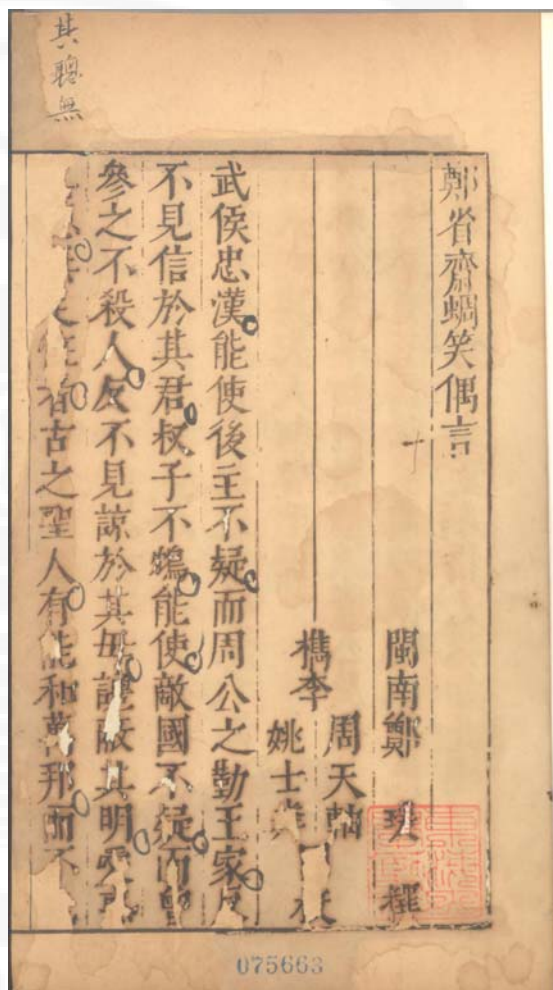 其聰無
鄭省齋蜩笑偶言
閩南鄭 瑗 撰
檇李
周天
姚士
武侯忠漢能使後主不疑而周公之勤王家反
不見信於其君叔子不鴆能使敵國不疑而曾
參之不殺人反不見諒於其母讒蔽其明
者古之聖人有能和萬邦而不
075663